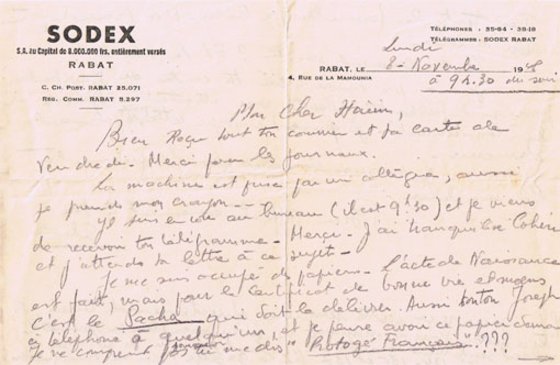 SODEX
S.A. au Capital de 8.000.000 frs. entièrement versés
RABAT
C. Ch. Post. RABAT 25.071
Reg. Comm. RABAT 5.297
TÉLÉPHONES : 35-84 38-18
TÉLÉGRAMMES : SODEX RABAT
Lundi
RABAT, LE 8 - Novembre 194
4, RUE DE LA MAMOUNIA
à 9h.30 du soir
Mon Cher Haïm,
Bien Reçu tout ton courrier et ta carte de
Vendredi. Merci pour les journaux.
La machine est prise par un collègue, aussi
je prends mon crayon --
Je suis encore au bureau (il est 9h 30) et je viens
de recevoir ton télégramme - Merci - J'ai tranquilisé Cohen
et j'attends ta lettre à ce sujet -
Je me suis occupé de papiers - L'acte de Naissance
est fait, mais pour le certificat de bonne vie et moeurs
c'est le Pacha qui doit le délivrer. Aussi tonton Joseph
a téléphoné à quelqu'un et je pense avoir ce papier demain
Je ne comprends pas pourquoi tu me dis "Protégé Français" ???